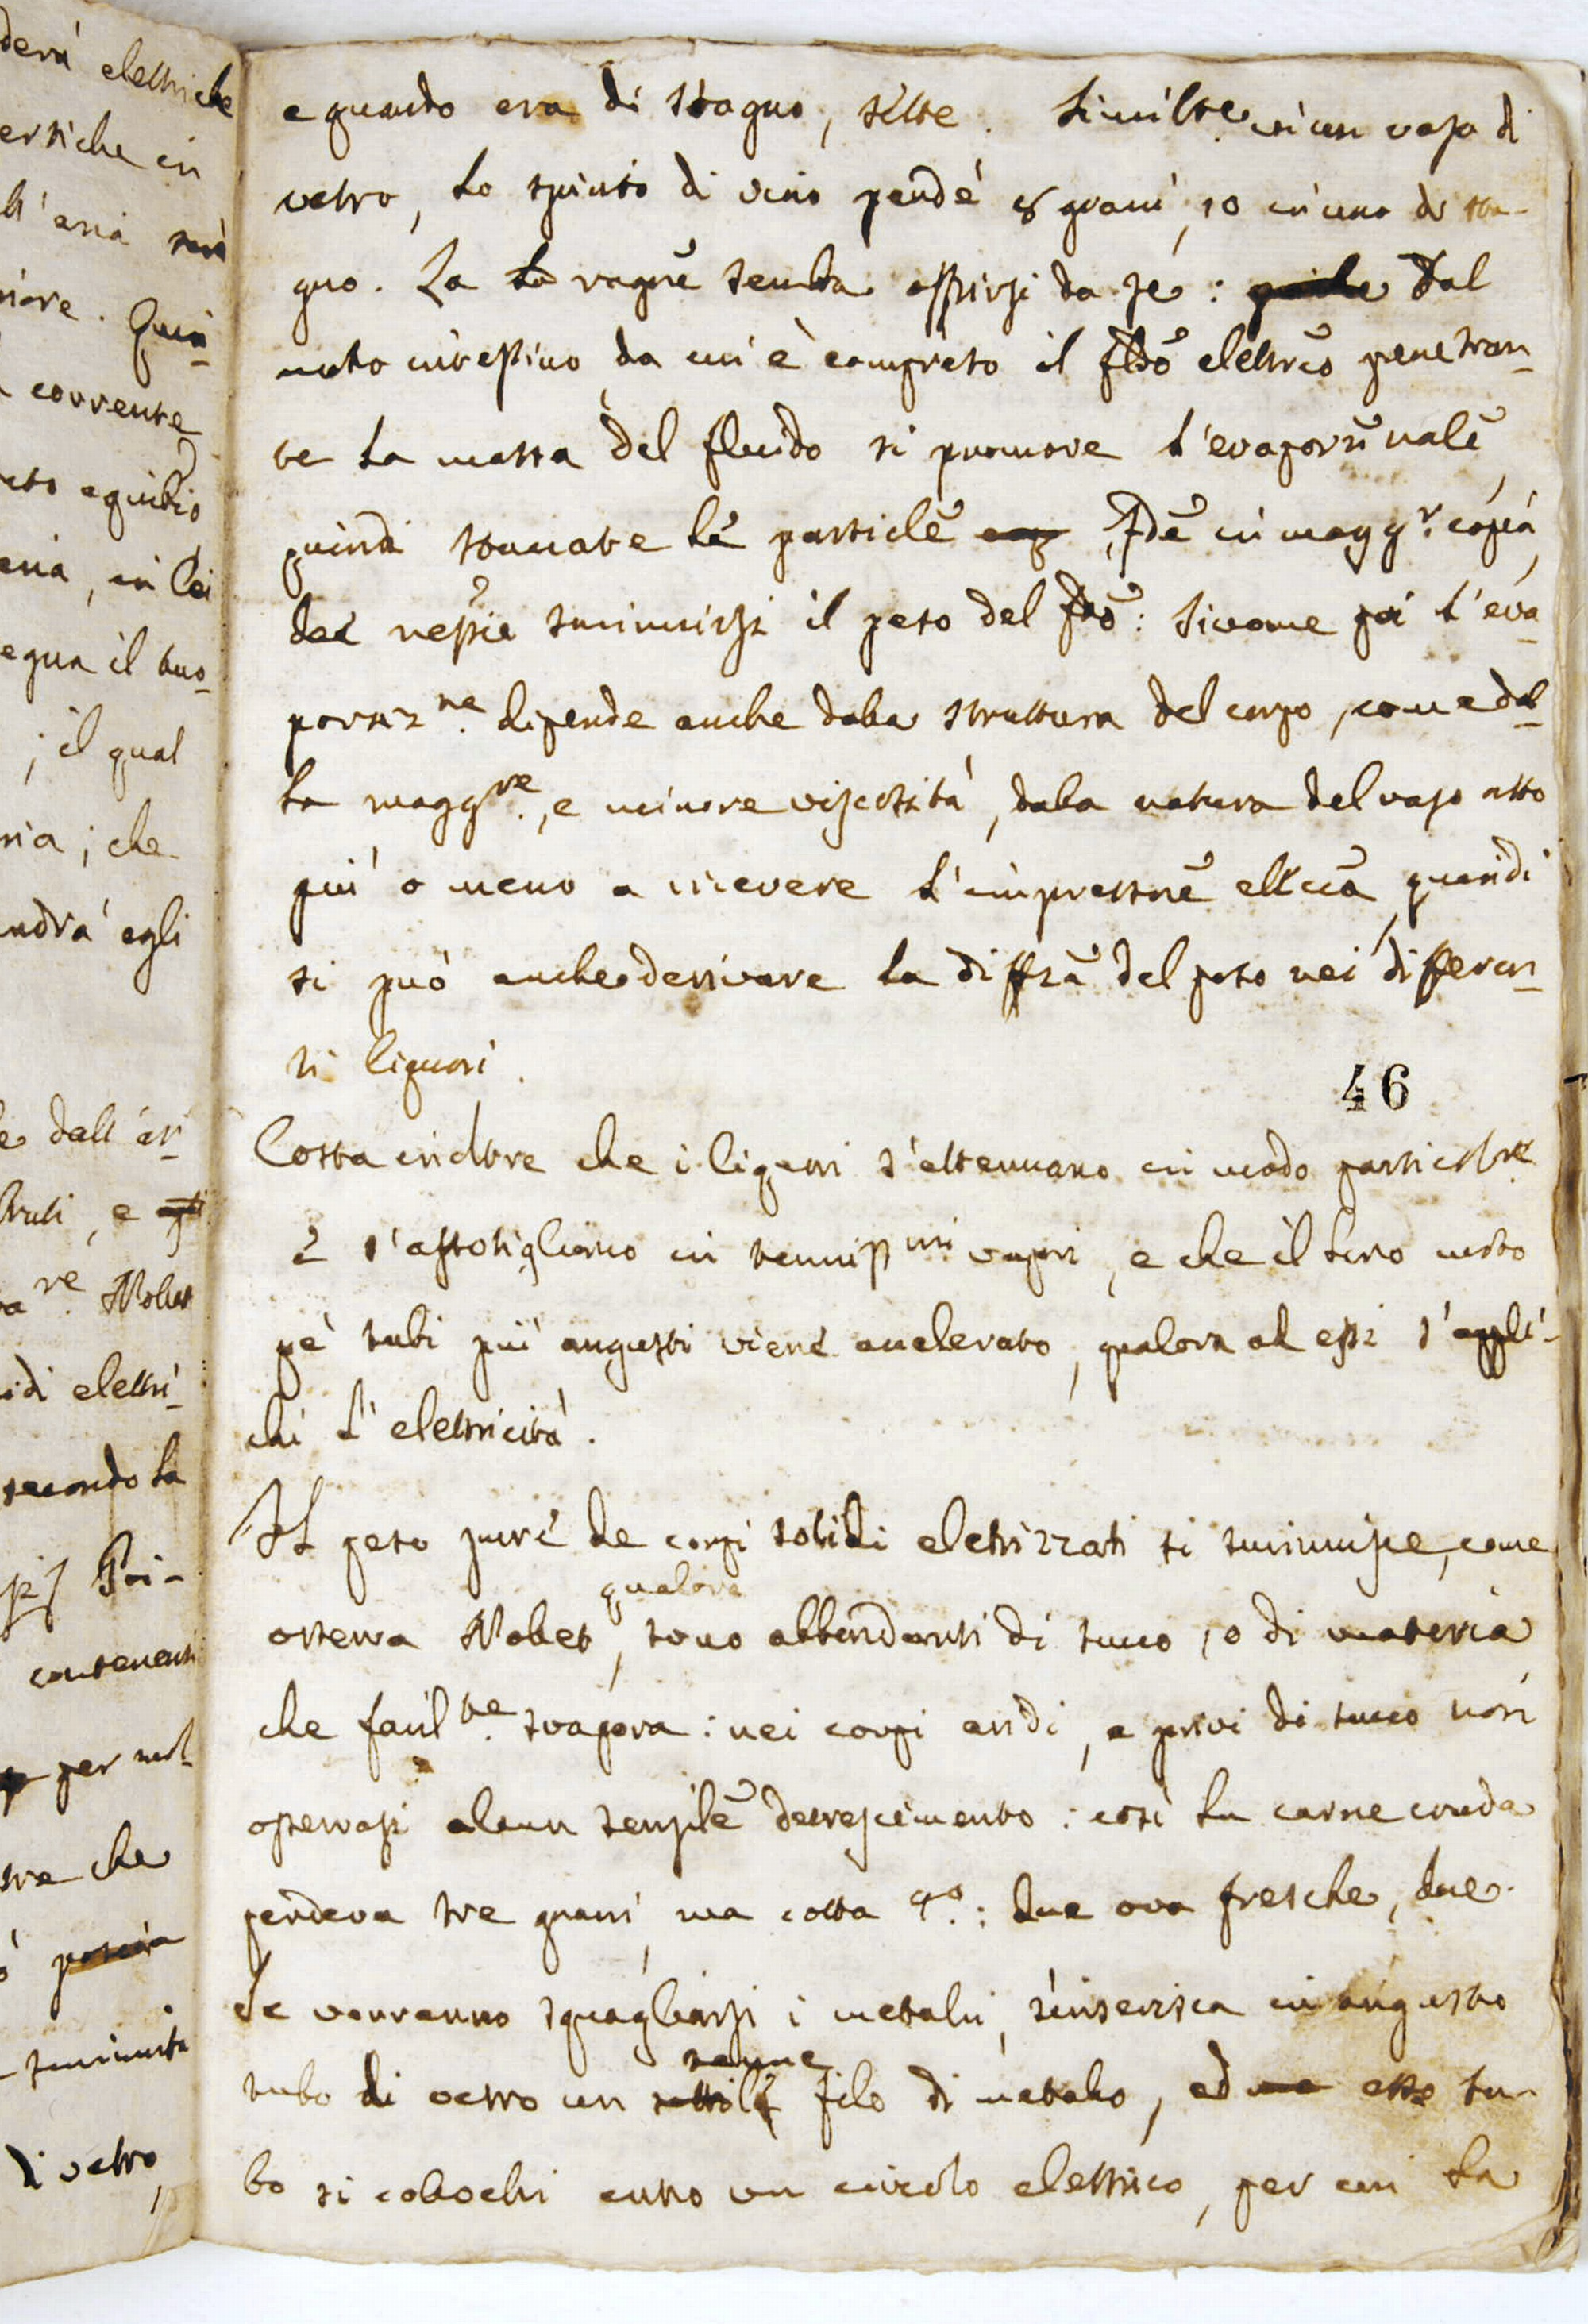 derà elettriche
ertiche in
ll'aria sarà
riore. Quin-
corrente
eguilib.o
aria, in lei
egua il suo-
; il qual
ria; che
ndrà egli
dall'ar-
e
Nollet
idi elettri-
secondo la
Poi-
contenenti
per mol-
tre che
sminuita
di vetro,
e quando era di stagno, sette. Similte in un vaso di
vetro, lo spirito di vino perdé 8 grani, 10 in uno di sta-
gno. La ragne sembra offrirsi da sé: dal
moto intestino da cui è compreso il fldo elettrco penetran-
te la massa del fluido si promove l'evaporne nale,
quindi staccate le particle fde in maggr. copia,
dee nesre sminuirsi il peso del fdo: Siccome poi l'eva-
poraz.ne dipende anche dalla struttura del corpo, come dal-
la magg.re, e minore viscosità, dalla natura del vaso atto
più o meno a ricevere l'impressne ellca, quindi
si può anche derivare la diffza del peso nei differen-
ti liquori.
46
Costa inoltre che i liquori s'attenuano in modo particolre
e s'assottigliano in tenuiss.mi vapori, e che il loro moto
pe' tubi più angusti viene accelerato, qualora ad essi s'appli-
chi l'elettricità.
Il peso pure de corpi solidi elettrizzati si sminuisce, come
qualora
osserva Nollet, sono abbondanti di succo, o di materia
che facil.te svapora: nei corpi aridi, e privi di succo non
osservasi alcun sensile decrescimento: così la carne cruda
perdeva tre grani, ma cotta 4.o: due ova fresche, due.
Se vorranno squagliarsi i metalli, s'inserisca in angusto
tenue
tubo di vetro un sottile filo di metallo, ed esso tu-
bo si collochi entro un circolo elettrico, per cui la